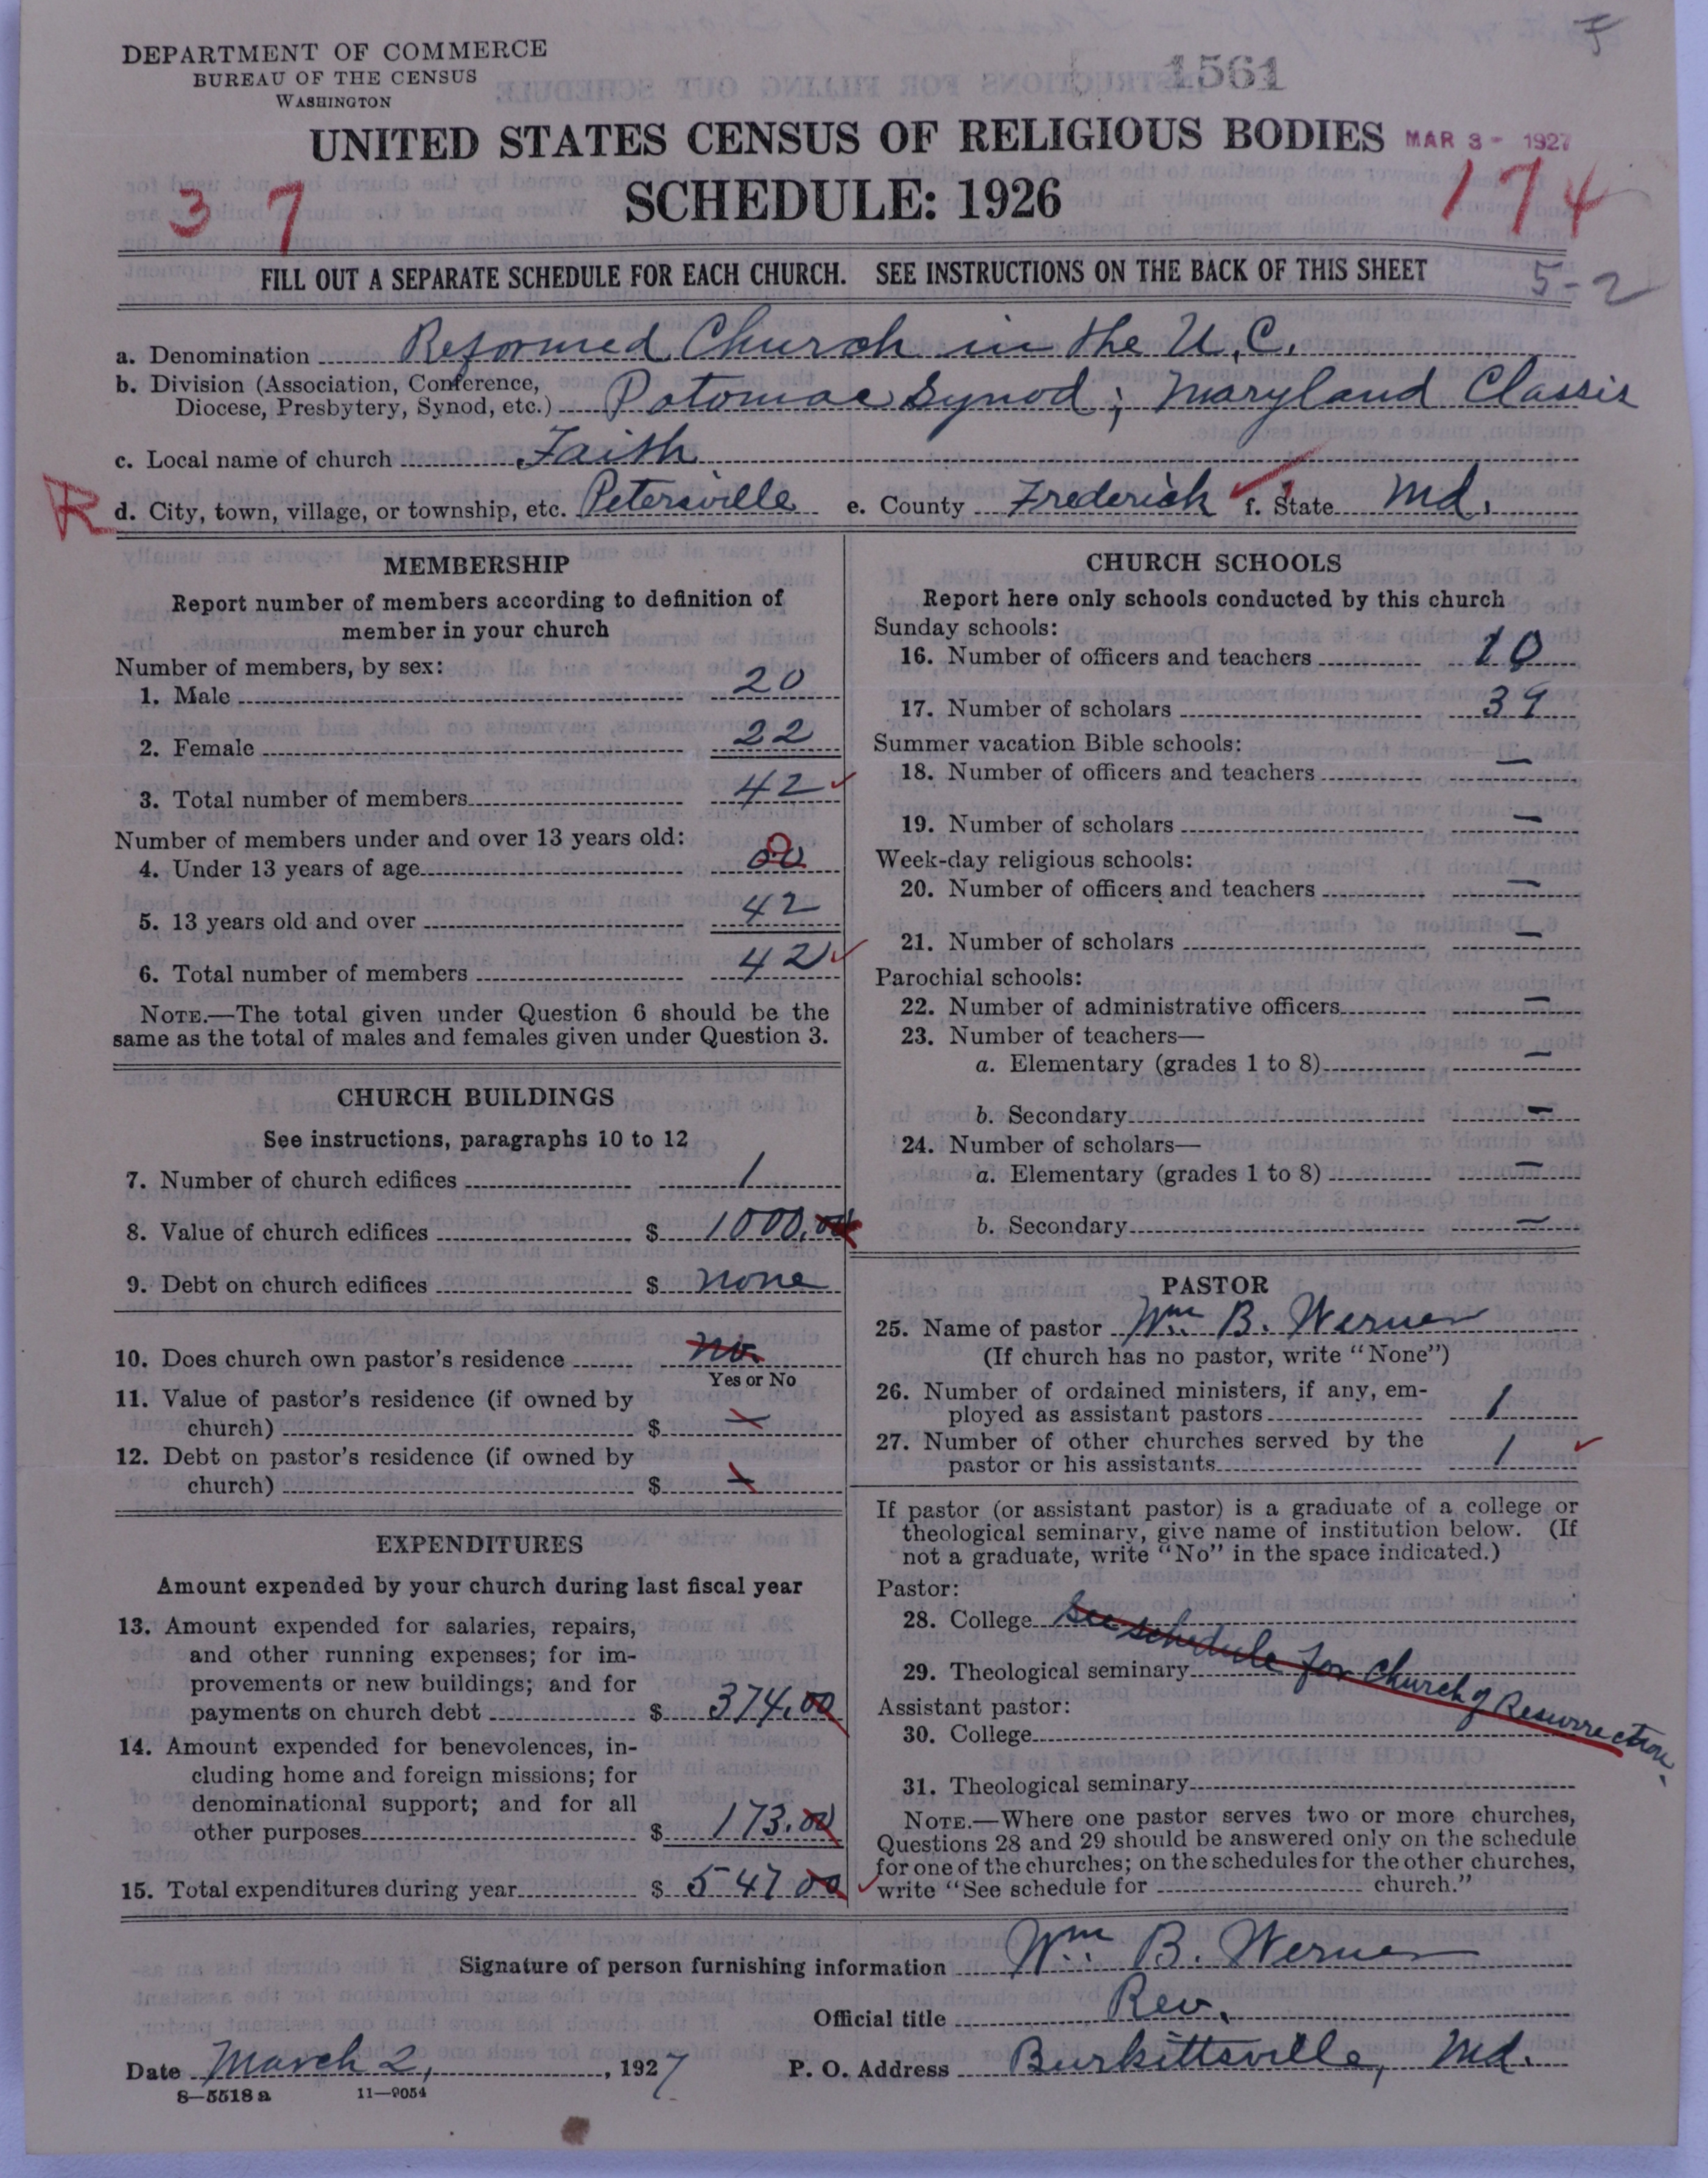 DEPARTMENT OF COMMERCE
BUREAU OF THE CENSUS
WASHINGTON
1561
UNITED STATES CENSUS OF RELIGIOUS BODIES MAR 3 - 1927
37 SCHEDULE: 1926 174
FILL OUT A SEPARATE SCHEDULE FOR EACH CHURCH. SEE INSTRUCTIONS ON THE BACK OF THIS SHEET 5-2
a. Denomination Reformed Church in the U.C.
b. Division (Association, Conference,
Diocese, Presbytery, Synod, etc.) Potomac Synod; Maryland Classis
c. Local name of church Faith
R d. City, town, village, or township, etc. Petersville e. County Frederick f. State Md.
MEMBERSHIP
Report number of members according to definition of
member in your church
Number of members, by sex:
1. Male 20
2. Female 22
3. Total number of members 42
Number of members under and over 13 years old:
4. Under 13 years of age 0
5. 13 years old and over 42
6. Total number of members 42
NOTE.—The total given under Question 6 should be the
same as the total of males and females given under Question 3.
CHURCH BUILDINGS
See instructions, paragraphs 10 to 12
7. Number of church edifices 1
8. Value of church edifices $ 1000.00
9. Debt on church edifices $ none
10. Does church own pastor's residence no.
Yes or No
11. Value of pastor's residence (if owned by
church) $ —
12. Debt on pastor's residence (if owned by
church) $ —
EXPENDITURES
Amount expended by your church during last fiscal year
13. Amount expended for salaries, repairs,
and other running expenses; for im-
provements or new buildings; and for
payments on church debt $ 374.00
14. Amount expended for benevolences, in-
cluding home and foreign missions; for
denominational support; and for all
other purposes $ 173.00
15. Total expenditures during year $ 547 00
CHURCH SCHOOLS
Report here only schools conducted by this church
Sunday schools:
16. Number of officers and teachers 10
17. Number of scholars 39
Summer vacation Bible schools:
18. Number of officers and teachers —
19. Number of scholars —
Week-day religious schools:
20. Number of officers and teachers —
21. Number of scholars —
Parochial schools:
22. Number of administrative officers —
23. Number of teachers—
a. Elementary (grades 1 to 8) —
b. Secondary —
24. Number of scholars—
a. Elementary (grades 1 to 8) —
b. Secondary —
PASTOR
25. Name of pastor Wm. B. Werner
(If church has no pastor, write "None")
26. Number of ordained ministers, if any, em-
ployed as assistant pastors 1
27. Number of other churches served by the
pastor or his assistants 1
If pastor (or assistant pastor) is a graduate of a college or
theological seminary, give name of institution below. (If
not a graduate, write "No" in the space indicated.)
Pastor:
28. College See schedule for Church of Resurrection.
29. Theological seminary
Assistant pastor:
30. College
31. Theological seminary
NOTE.—Where one pastor serves two or more churches,
Questions 28 and 29 should be answered only on the schedule
for one of the churches; on the schedules for the other churches,
write "See schedule for church."
Signature of person furnishing information Wm. B. Werner
Official title Rev.
Date March 2, 1927 P. O. Address Burkittsville, Md.
8—5518 a 11—9054